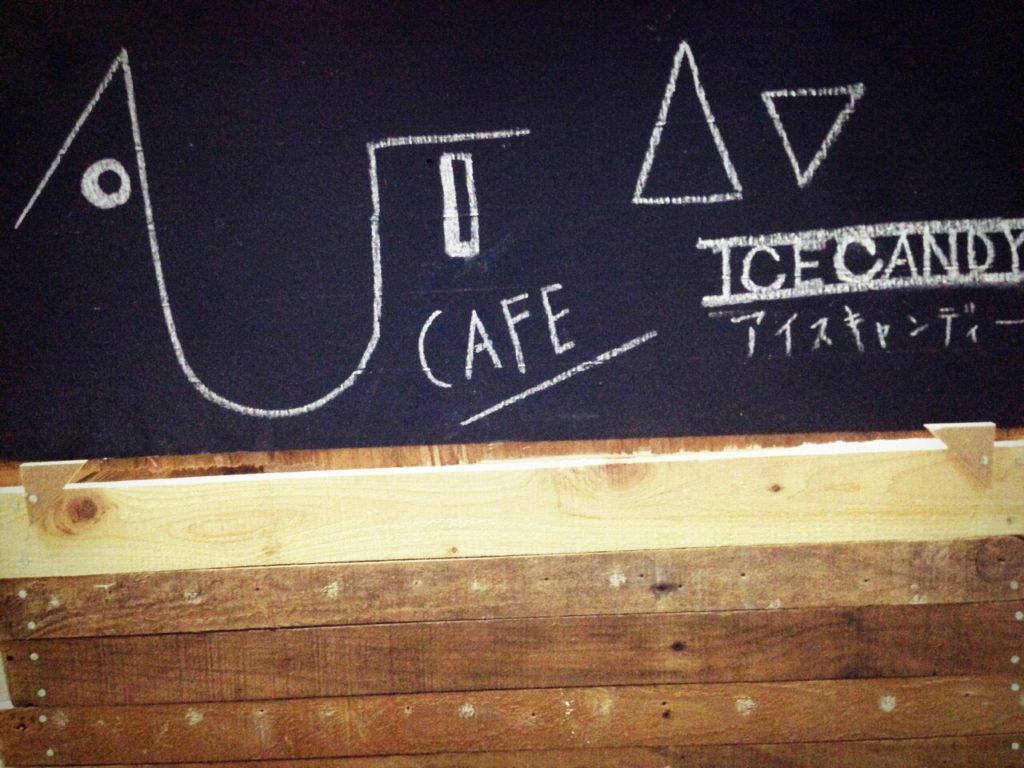 CAFE
ICE CANDY
アイスキャンディー